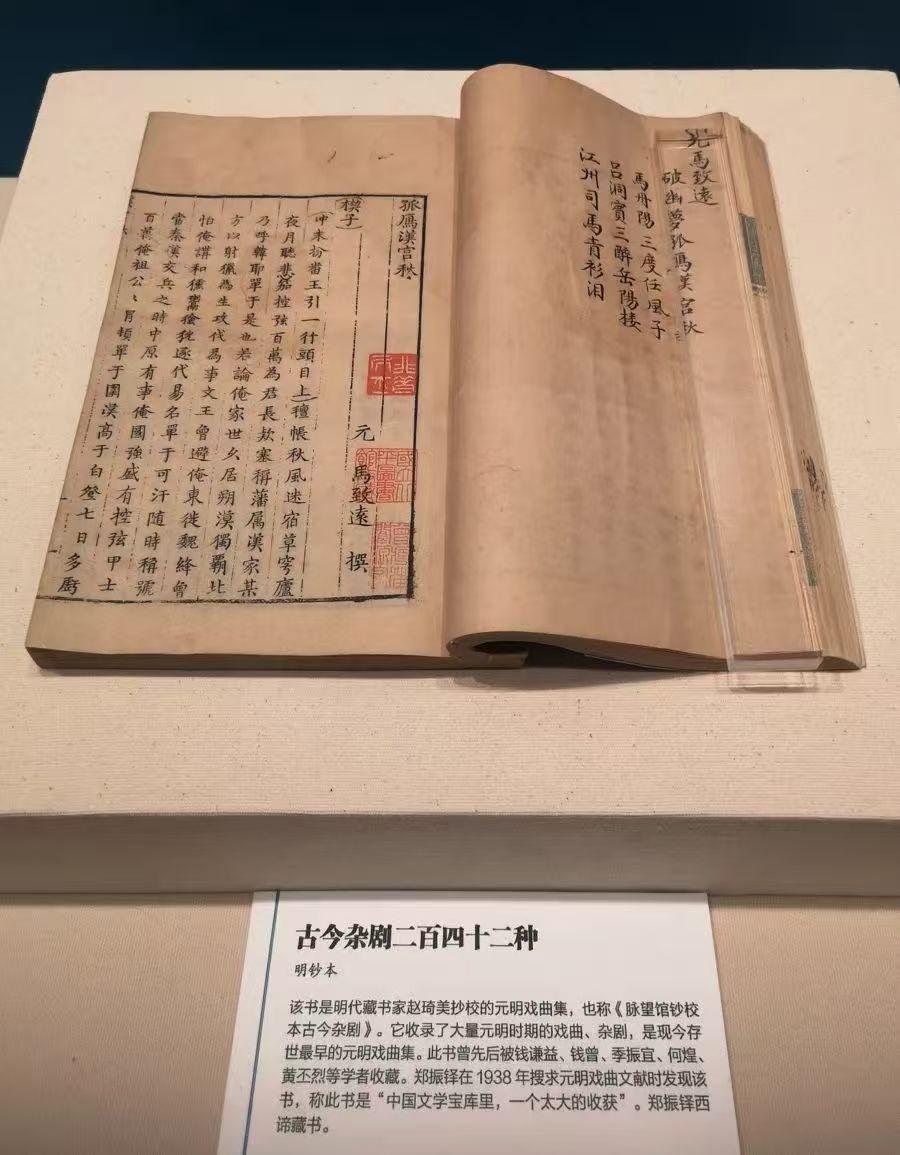 元馬致遠
破幽夢孤鴈漢宮秋
馬丹陽三度任風子
呂洞賓三醉岳陽楼
江州司馬青衫泪
孤鴈漢宮秋
元 馬致遠 撰
楔子
冲末扮畨王引一行頭目上氊帳秋風迷宿草穹廬
夜月聽悲笳控弦百萬為君長欵塞稱藩属漢家某
乃呼韓耶單于是也若論俺家世乆居朔漠獨覇北
方以射獵為生攻伐為事文王曾避俺東徙魏絳曾
怕俺講和獯鬻獫狁逐代易名單于可汗随時稱號
當秦漢交兵之時中原有事俺國強盛有控弦甲士
百萬俺祖公公冒頓單于圍漢高于白登七日
古今杂剧二百四十二种
明钞本
该书是明代藏书家赵琦美抄校的元明戏曲集，也称《脉望馆钞校
本古今杂剧》。它收录了大量元明时期的戏曲、杂剧，是现今存
世最早的元明戏曲集。此书曾先后被钱谦益、钱曾、季振宜、何煌、
黄丕烈等学者收藏。郑振铎在1938年搜求元明戏曲文献时发现该
书，称此书是“中国文学宝库里，一个太大的收获”。郑振铎西
谛藏书。